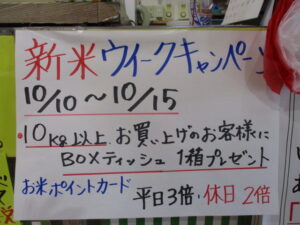 新米ウイークキャンペーン
10/10～10/15
・10kg以上 お買い上げのお客様に
BOXティッシュ 1箱プレゼント
お米ポイントカード
平日3倍・休日2倍